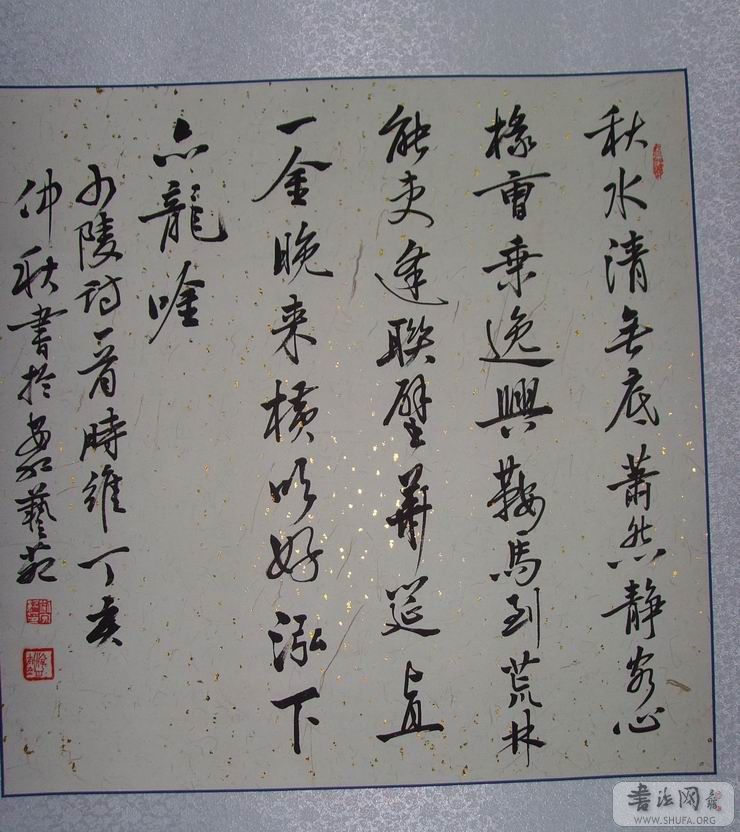 秋水清無底蕭然静客心
掾曹乘逸興鞍馬到荒林
能吏逢聯璧華筵直
一金晚来横吹好泓下
亦龍唫
少陵詩一首時維丁亥
仲秋書於藝苑
書法网
WWW.SHUFA.ORG